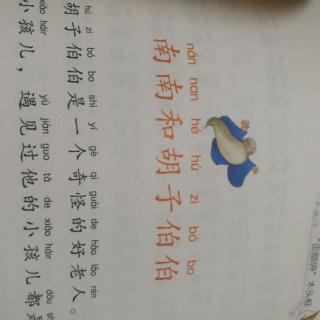 “歪脑袋”木头桩
nán nan hé hú zi bó bo
南南和胡子伯伯
hú zi bó bo shì yí gè qí guài de hǎo lǎo rén
胡子伯伯是一个奇怪的好老人。
xiǎo háir yù jiàn guo tā de xiǎo háir dōu
小孩儿，遇见过他的小孩儿都